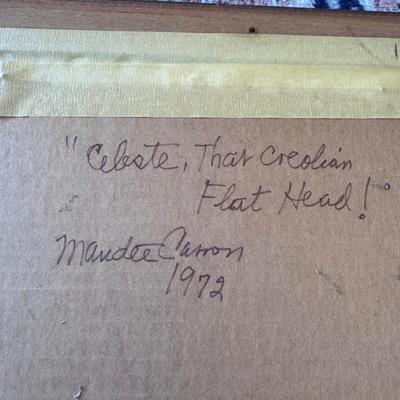 "Celeste, That Creolian
Flat Head!"
Maudee Carron
1972